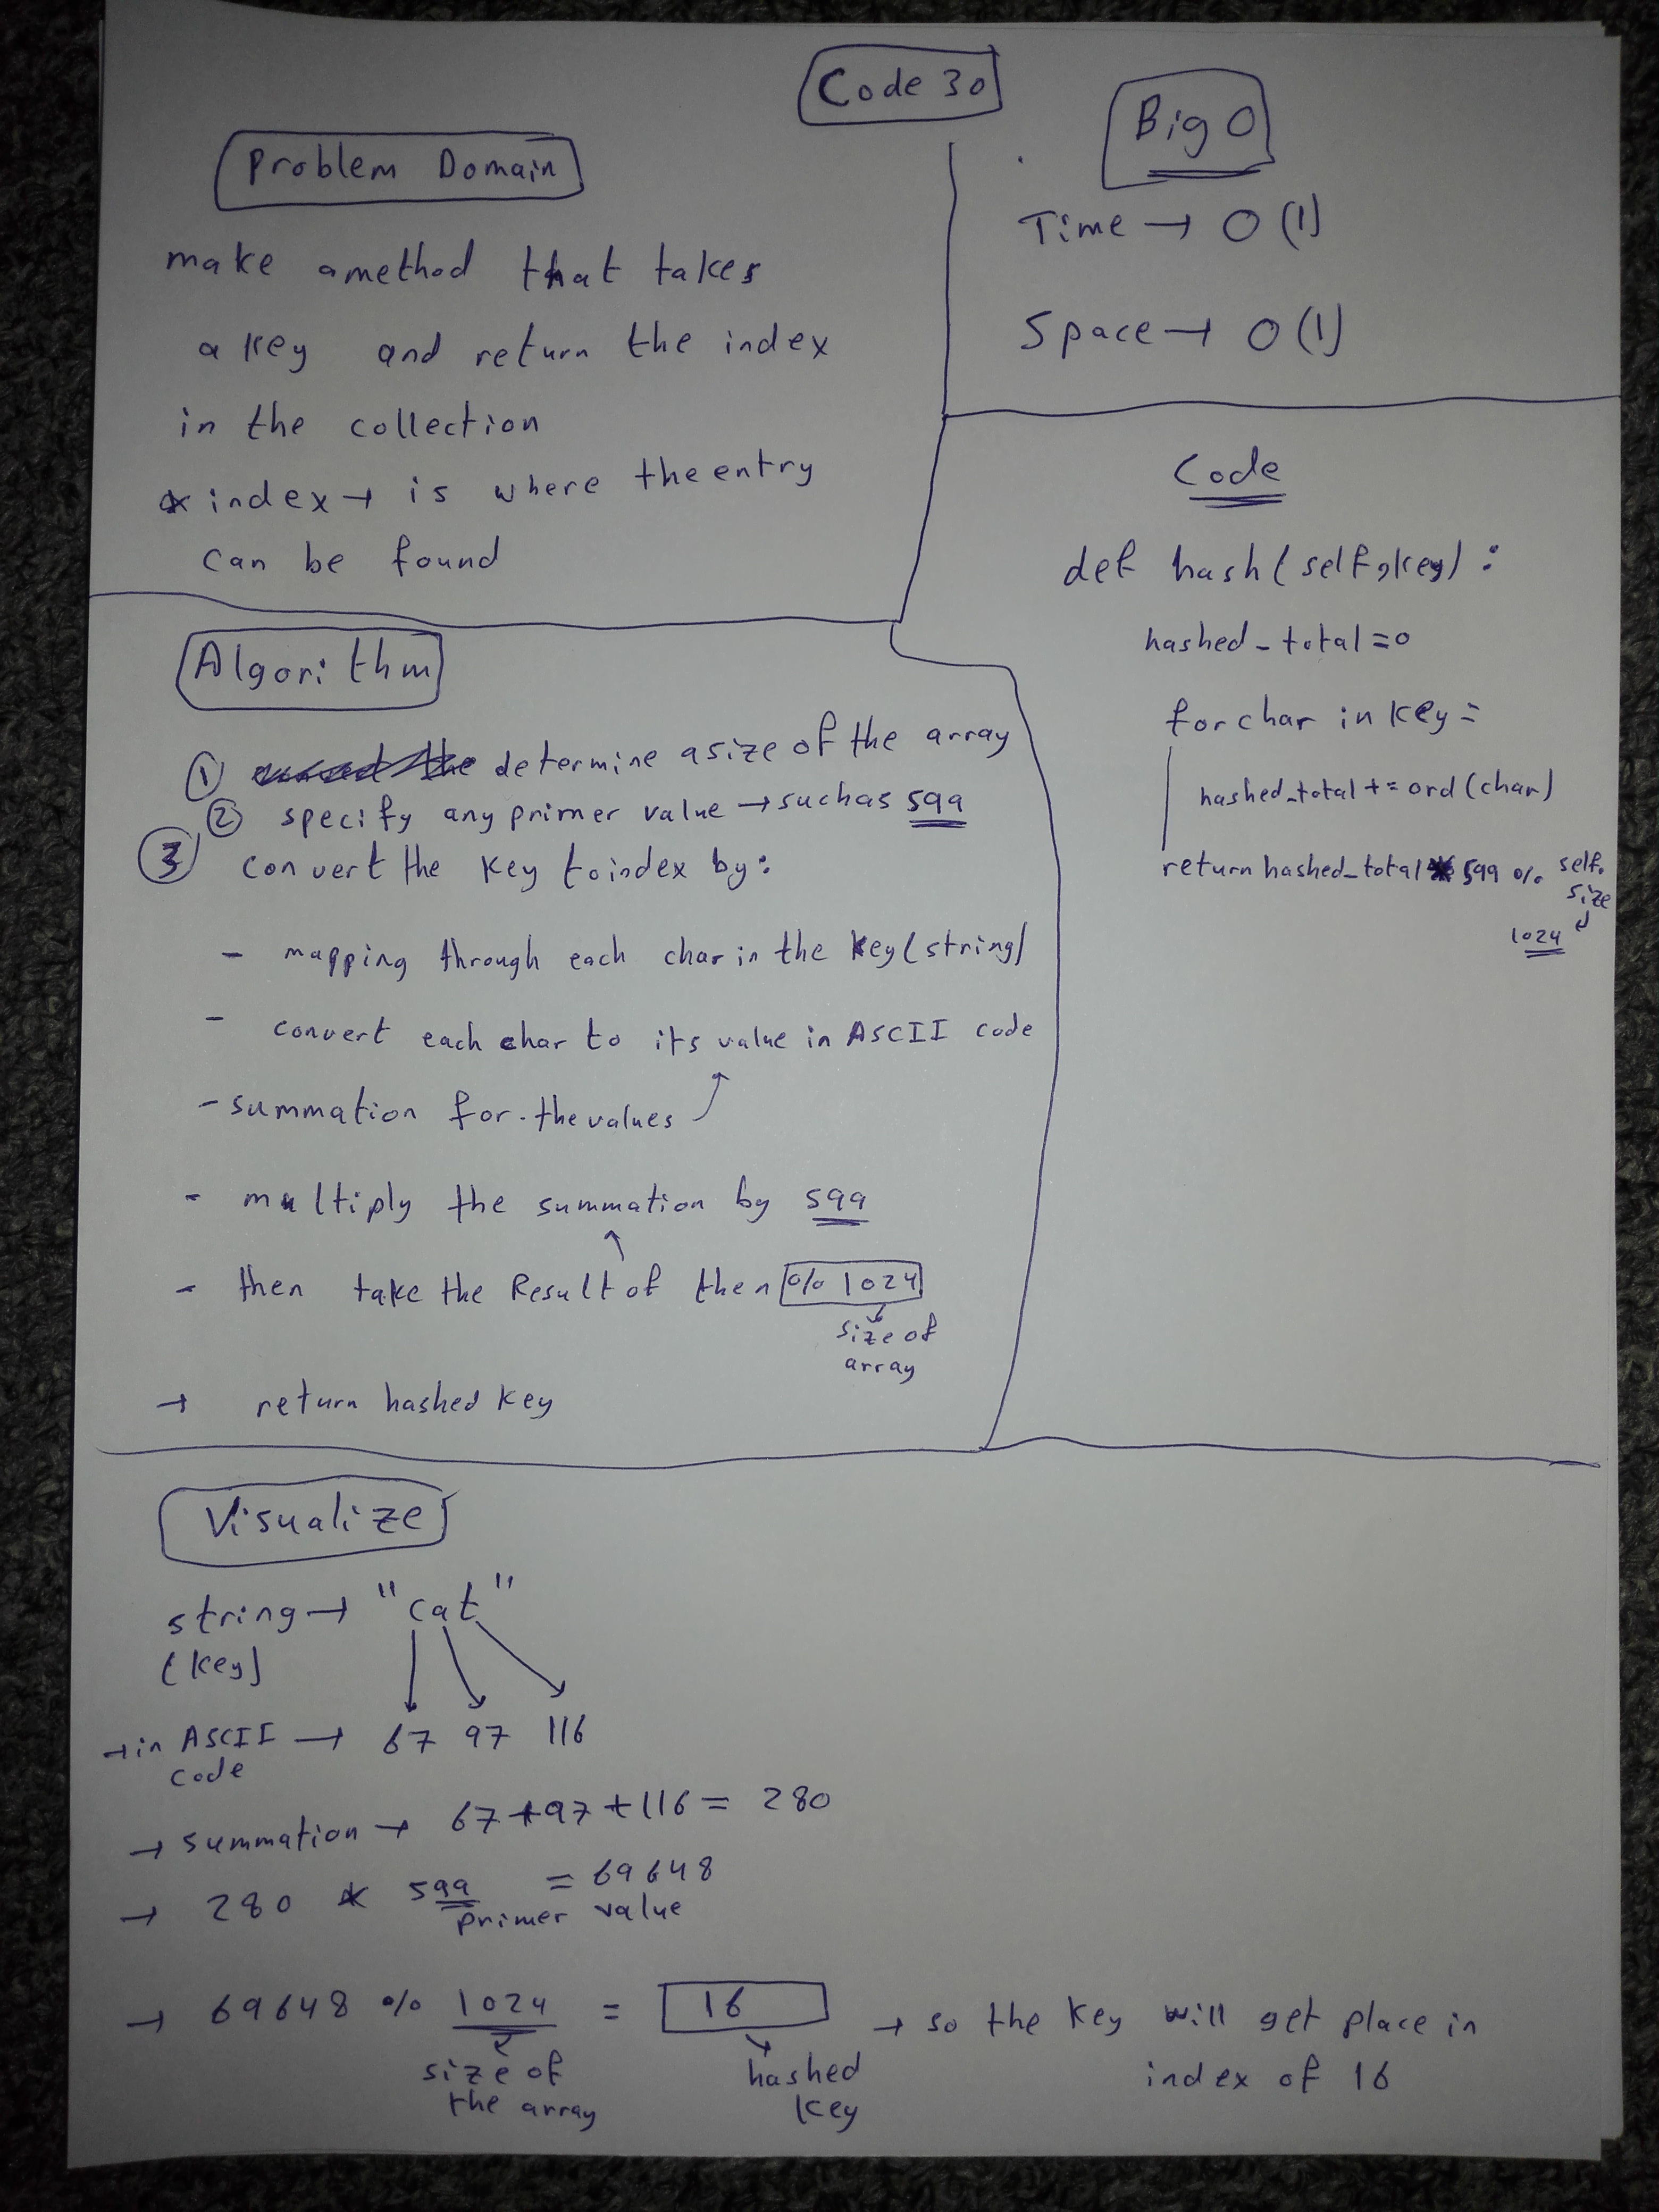 Code 30
Problem Domain
make a method that takes
a key and return the index
in the collection
* index → is where the entry
can be found
Big O
Time → O(1)
Space → O(1)
Algorithm
① determine a size of the array
② specify any primer value → such as 599
③ convert the key to index by:
- mapping through each char in the key (string)
- convert each char to its value in ASCII code
- summation for the values
- multiply the summation by 599
- then take the Result of then % 1024
size of
array
→ return hashed key
Code
def hash(self,key):
hashed_total=0
for char in key:
hashed_total += ord(char)
return hashed_total * 599 % self.
size
1024
Visualize
string → "cat"
(key)
→ in ASCII → 67 97 116
code
→ summation → 67+97+116= 280
→ 280 * 599 = 69648
primer value
→ 69648 % 1024 = 16 → so the key will get place in
index of 16
size of
the array
hashed
key